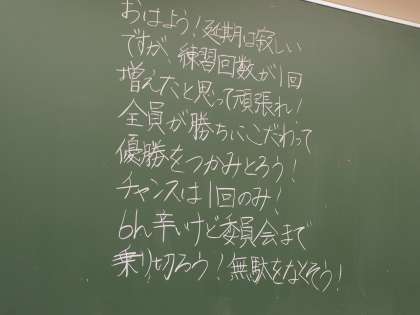 おはよう!延期は寂しい
ですが、練習回数が1回
増えたと思って頑張れ!
全員が勝ちにこだわって
優勝をつかみとろう!
チャンスは1回のみ!
6h辛いけど委員会まで
乗り切ろう!無駄をなくそう!